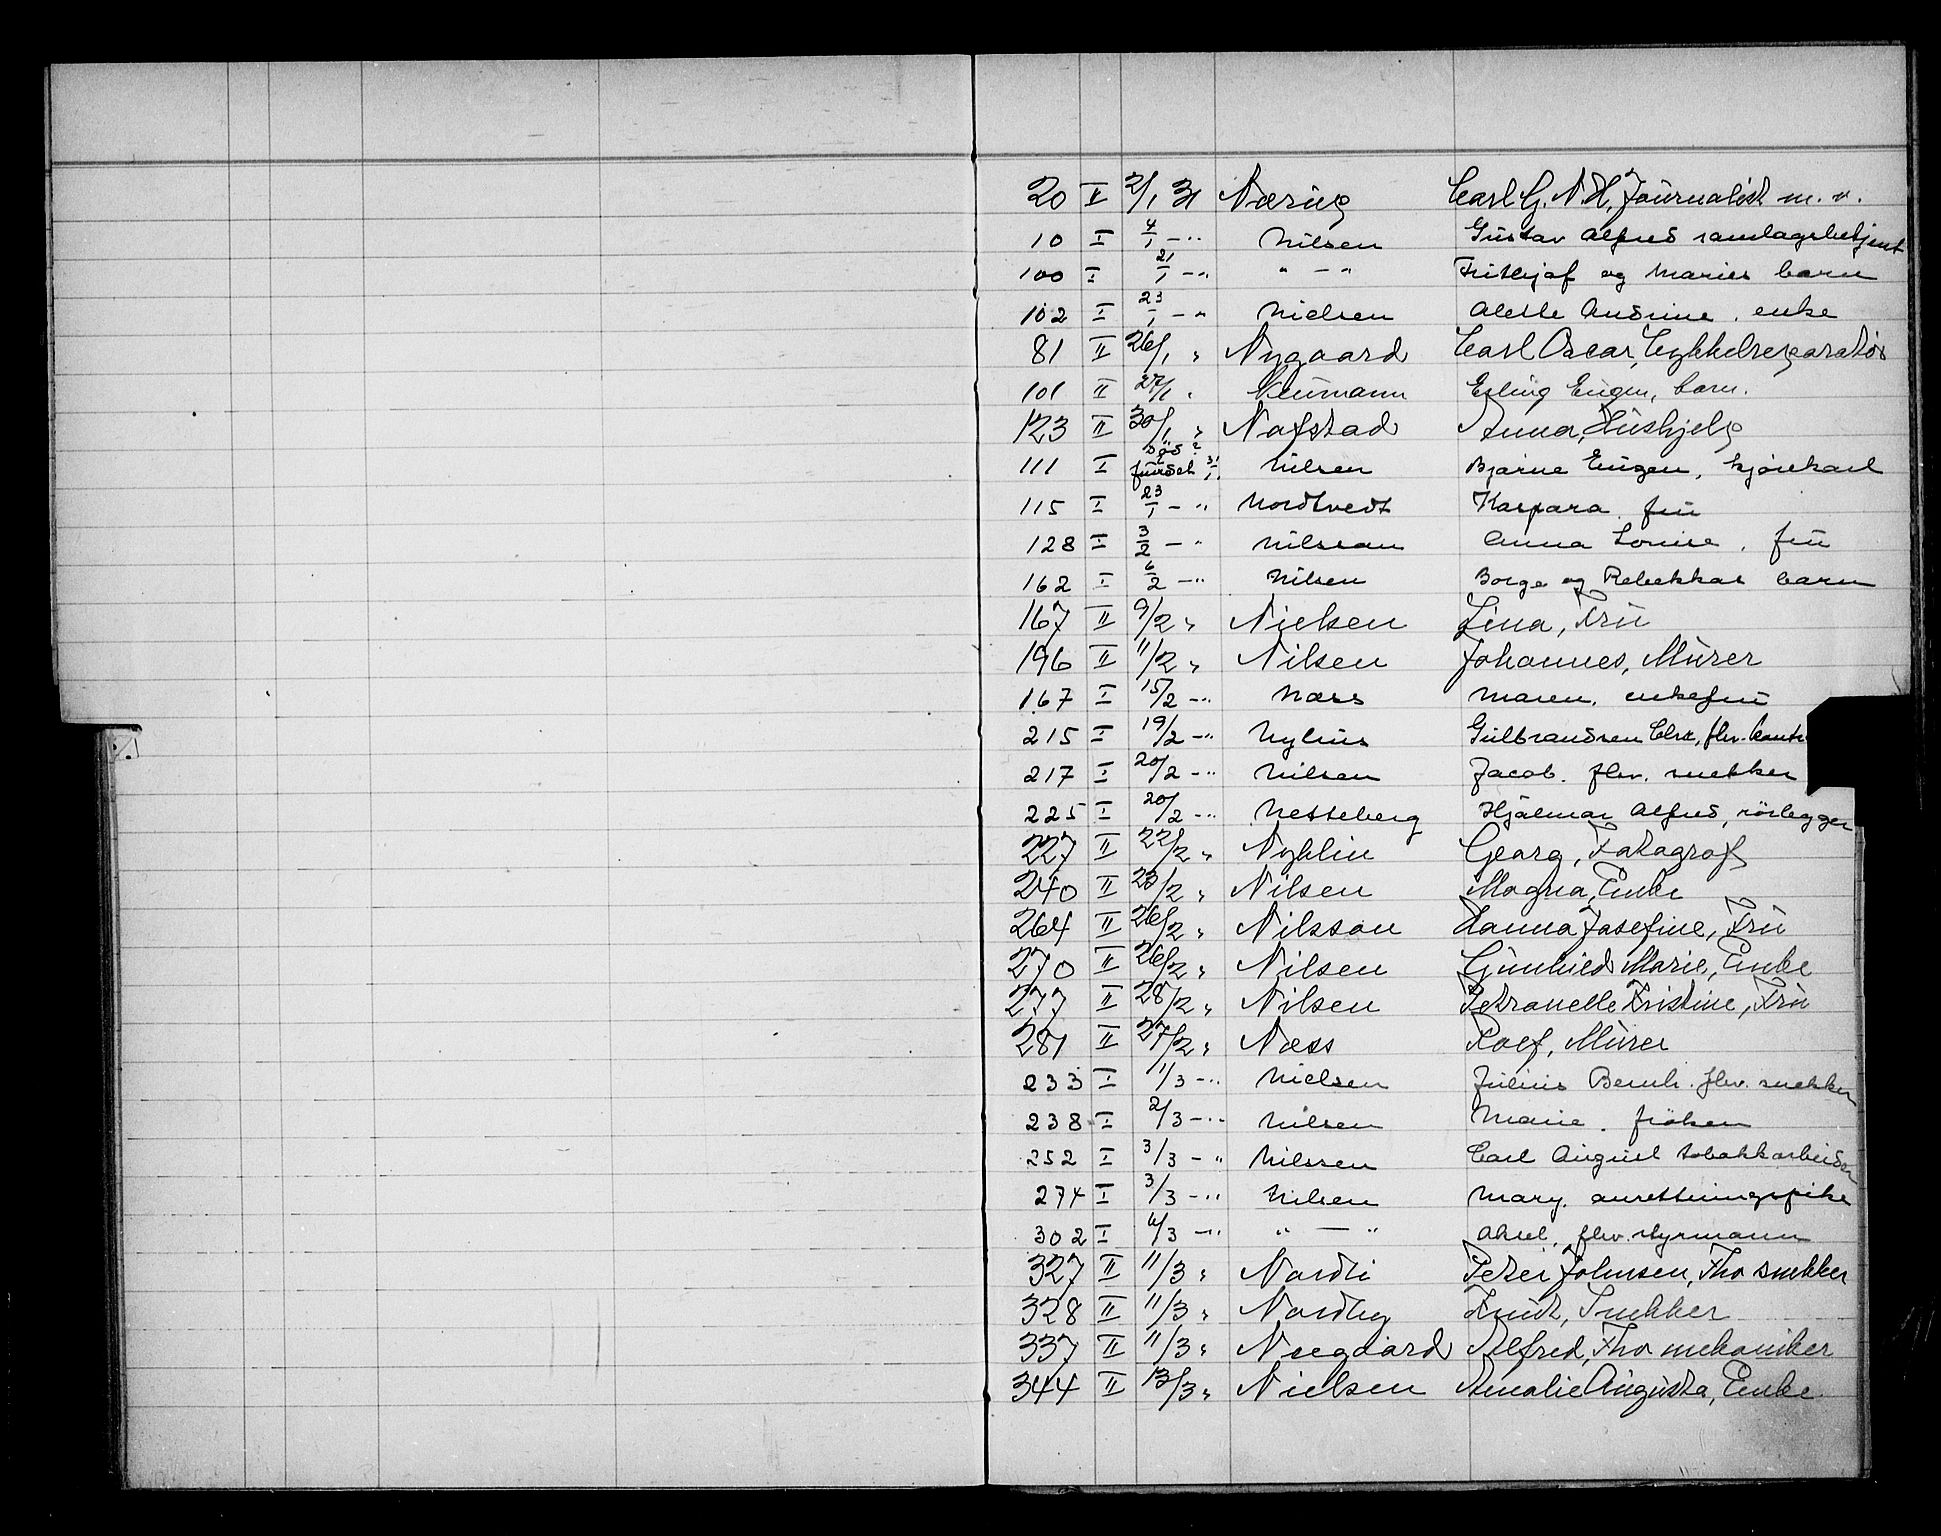 20 II 2/1 31 Næring Carl G. N. H, Journalist m. v.
10 I 4/1 - " Nilsen Gustav Alfred samlagsbetjent
100 I 21/1 - " " - " Frithjof og Maries barn
102 I 23/1 - " Nielsen Alette Andrine. enke
81 II 26/1 " Nygaard Carl Oscar, Cykkelreparatør
101 II 27/1 " Neumann Erling Eugen, barn.
123 II 30/1 " Nafstad Anna, Hushjelp
111 I død? funnet 31/1 Nilsen Bjarne Eugen, kjørekarl
115 I 23/1 - " Nordtvedt Kaspara. fru
128 I 3/2 - " Nilsson Anna Louise. fru
162 I 6/2 - " Nilsen Borge og Rebekkas barn
167 II 9/2 " Nielsen Lina, Fru
196 II 11/2 " Nilsen Johannes, Murer
167 I 15/2 - " Næss Maren. enkefru
215 I 19/2 - " Nylius Gulbrandsen Chr., fhv.
217 I 20/2 - " Nilsen Jacob. fhv. snekker
225 I 20/2 - " Nesseberg Hjalmar Alfred, rørlegger
227 II 22/2 " Nyblin Georg, Fotograf
240 II 23/2 " Nilsen Magna, Enke
264 II 26/2 " Nilsson Hanna Josefine, Fru
270 II 26/2 " Nilsen Gunhild Marie, Enke
277 II 28/2 " Nilsen Petronelle Kristine, Fru
281 II 27/2 " Næss Roef, Murer
233 I 1/3 - " Nielsen Julius Bernh. fhv. snekker
238 I 2/3 - " Nilsen Marie. frøken
252 I 3/3 - " Nilssen Carl August tobakkarbeider
274 I 3/3 - " Nilsen Mary. anretningspike
302 I 6/3 - " " - " Aksel, fhv. styrmann
327 II 11/3 " Nordli Peter Johnsen, Fho snekker
328 II 11/3 " Nordby Knut, Snekker
337 II 11/3 " Neegaard Alfred, Fho mekaniker
344 II 13/3 " Nielsen Amalie Augusta, Enke